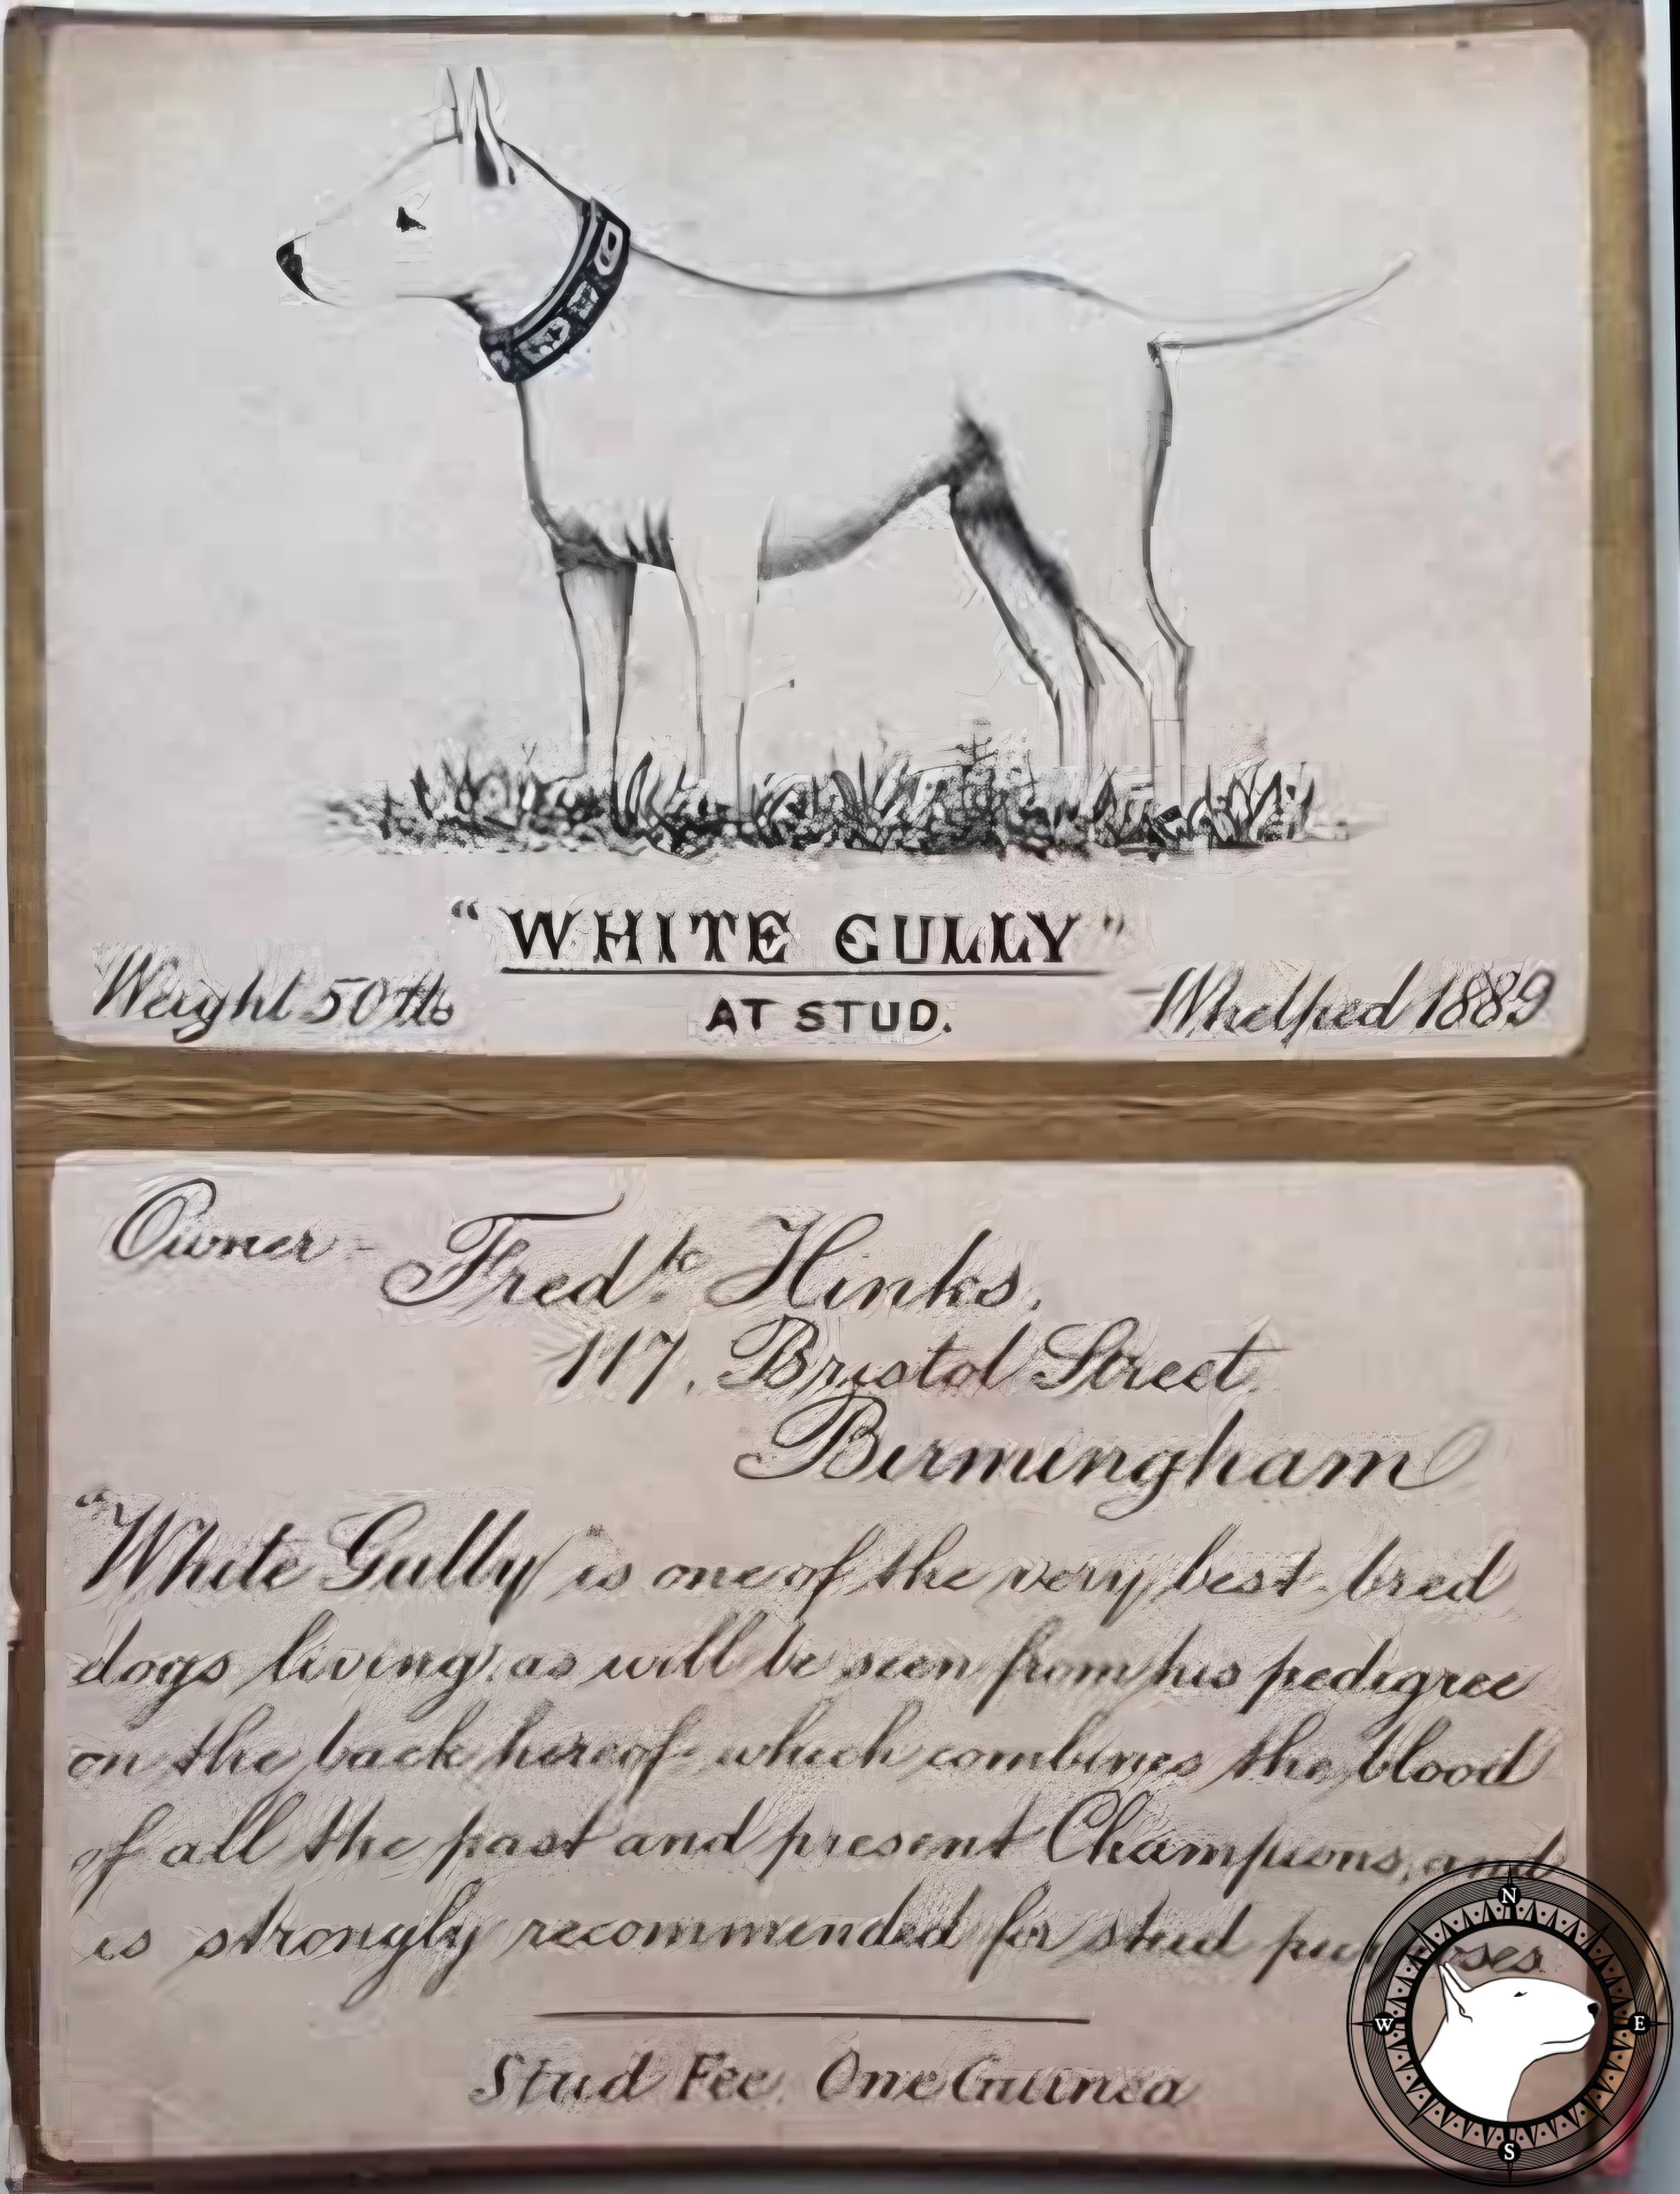 "WHITE GULLY"
Weight 50 lb
AT STUD.
Whelped 1889
Owner - Fredk. Hinks.
117, Bristol Street
Birmingham
"White Gully" is one of the very best-bred
dogs living, as will be seen from his pedigree
on the back hereof which combines the blood
of all the past and present Champions, and
is strongly recommended for stud purposes
Stud Fee. One Guinea
N
W
E
S